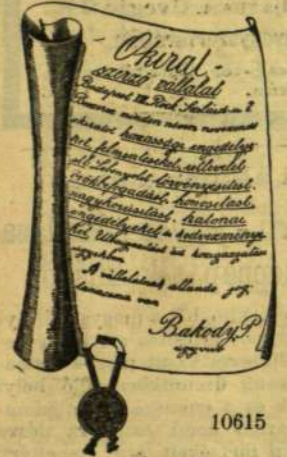 Okirat-
szerző vállalat
Budapest VII. Rock Szilárd-u. 2
Beszerez minden néven nevezendő
okiratot házassági engedélye-
ket, felmentéseket, útlevelet
törvényesítést,
örökbefogadást, honosítást,
nagykorúsítást, katonai
engedélyeket és kedvezménye-
ket. Utbaigazítást ad közigazgatási
ügyekben.
A vállalatnak állandó jog-
tanácsosa van
Bakody P.
ügyvéd
10615